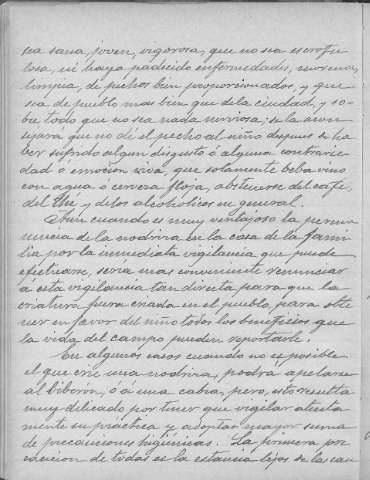 sea sana, joven, vigorosa, que no sea escrofu-
losa, ni haya padecido enfermedades, morena,
limpia, de pechos bien proporcionados, y que
sea de pueblo mas bien que de la ciudad, y so-
bre todo que no sea nada nerviosa; se la acon-
sejará que no dé el pecho al niño despues de ha
ber sufrido algun disgusto ó alguna contrarie-
dad o emocion viva, que solamente beba vino
con agua ó cerveza floja, abstenerse del café,
del Thé y de los alcohólicos en general.
Aun cuando es muy ventajoso la perma
nencia de la nodriza en la casa de la fami
lia por la inmediata vigilancia que puede
efectuarse, seria mas conveniente renunciar
á esta vigilancia tan directa para que la
criatura fuera criada en el pueblo, para obte
ner en favor del niño todos los beneficios que
la vida del campo pueden reportarle.
En algunos casos cuando no es posible
el que crie una nodriza, podrá apelarse
al biberón, ó á una cabra, pero, esto resulta
muy delicado por tener que vigilar atenta
mente su práctica y adoptar mayor suma
de precauciones higiénicas. La primera pre
caucion de todas es la estancia lejos de la